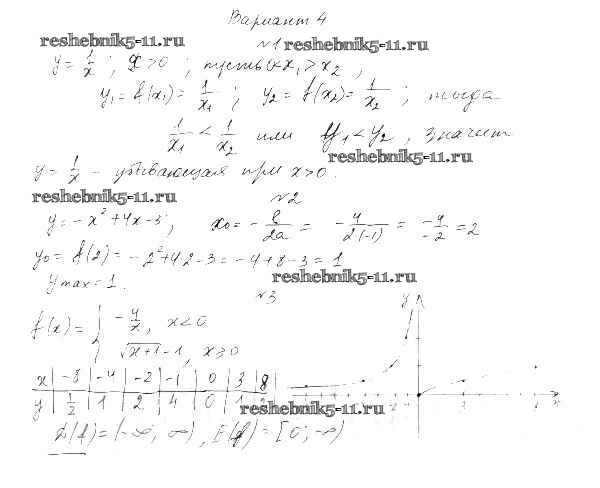 Вариант 4
reshebnik5-11.ru
№1 reshebnik5-11.ru
y = 1/x ; x > 0 ; пусть x₁ > x₂ ,
y₁ = f(x₁) = 1/x₁ ; y₂ = f(x₂) = 1/x₂ ; тогда
1/x₁ < 1/x₂ или y₁ < y₂ , значит
reshebnik5-11.ru
y = 1/x - убывающая при x > 0.
reshebnik5-11.ru
№2
y = -x² + 4x - 3 ; x₀ = - b/2a = - 4/2(-1) = -4/-2 = 2
y₀ = f(2) = -2² + 4·2 - 3 = -4 + 8 - 3 = 1
reshebnik5-11.ru
y max = 1.
№3
f(x) = { -4/x , x < 0
√x+1 - 1 , x ⩾ 0
x | -8 | -4 | -2 | -1 | 0 | 3 | 8
y | 1/2 | 1 | 2 | 4 | 0 | 1
reshebnik5-11.ru
D(f) = (-∞; ∞) , E(f) = [0; -∞)
y